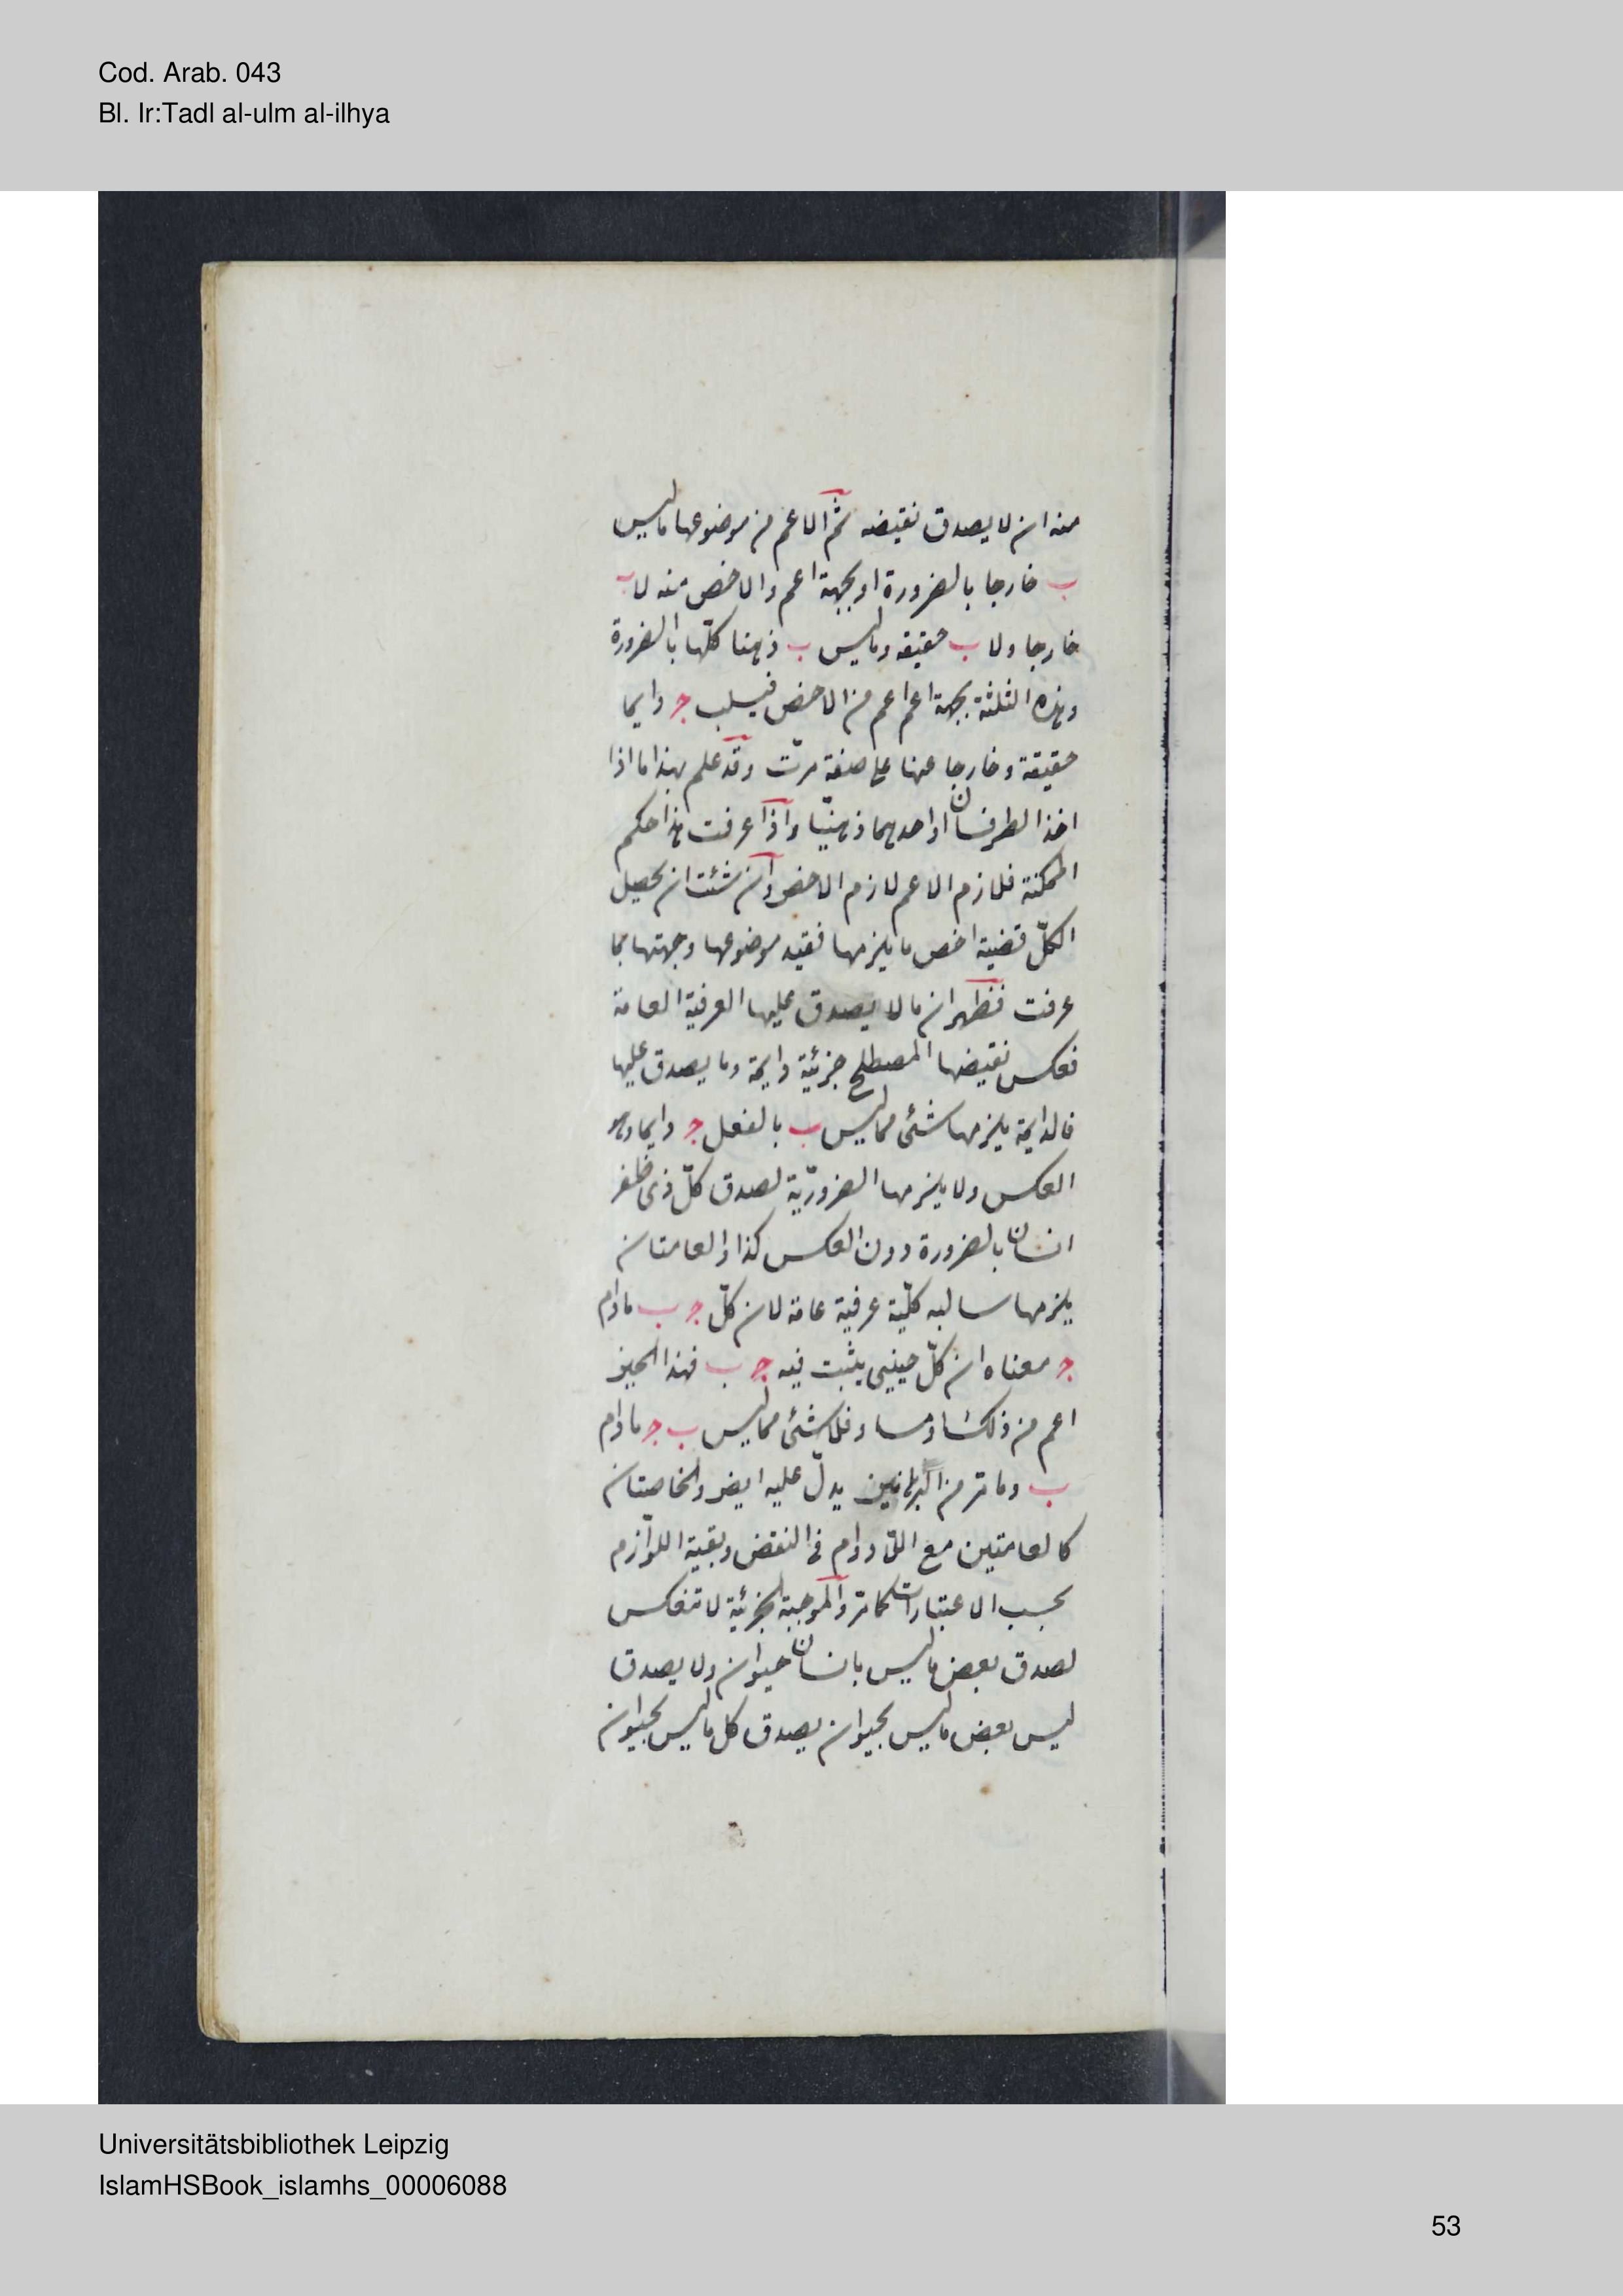 Cod. Arab. 043
Bl. Ir:Tadl al-ulm al-ilhya
منه ان لا يصدق نقيضه ثم الاعم من موضوعها ما ليس
ب خارجا بالضرورة او بجهة اعم والاخص منه لا ب
خارجا ولا ب حقيقه وما ليس ب ذهنا كلّها بالضرورة
وهذه الثلثة بجهة اعم اعم من الاخص فيسلب ج دايما
حقيقة وخارجا عنها على صفة مرّت وقد علم بهذا ما اذا
اخذ الطرفان او احدهما ذهنيّا واذا عرفت هذا حكم
الممكنة فلازم الاعم لازم الاخص وان شئت ان يحصل
الكلّ قضية اخص ما يلزمها فقيد موضوعها وجهتها بما
عرفت فظهر ان ما لا يصدق عليها العرفية العامة
فعكس نقيضها المصطلح جزئية دايمة وما يصدق عليها
فالدايمة يلزمها شئ مما ليس ب بالفعل ج دايما وهو
العكس ولا يلزمها الضروريّة لصدق كلّ ذى ظفر
انسان بالضرورة دون العكس كذا والعامتان
يلزمها سالبه كلّية عرفية عامة لان كلّ ج ب مادام
ج معناه ان كلّ حينٍ يثبت فيه ج ب فهذا الحين
اعم من ذلك او مساو فلا شئ مما ليس ب ج مادام
ب وما مر من البراهين يدلّ عليه ايض والخاصتان
كالعامتين مع اللّا دوام فى النقض وبقية اللوازم
بحسب الاعتبارات كما مر والموجبة الجزئية لا تنعكس
لصدق بعض ما ليس بانسان حيوان ولا يصدق
ليس بعض ما ليس بحيوان يصدق كل ما ليس بحيوان
Universitätsbibliothek Leipzig
IslamHSBook_islamhs_00006088
53